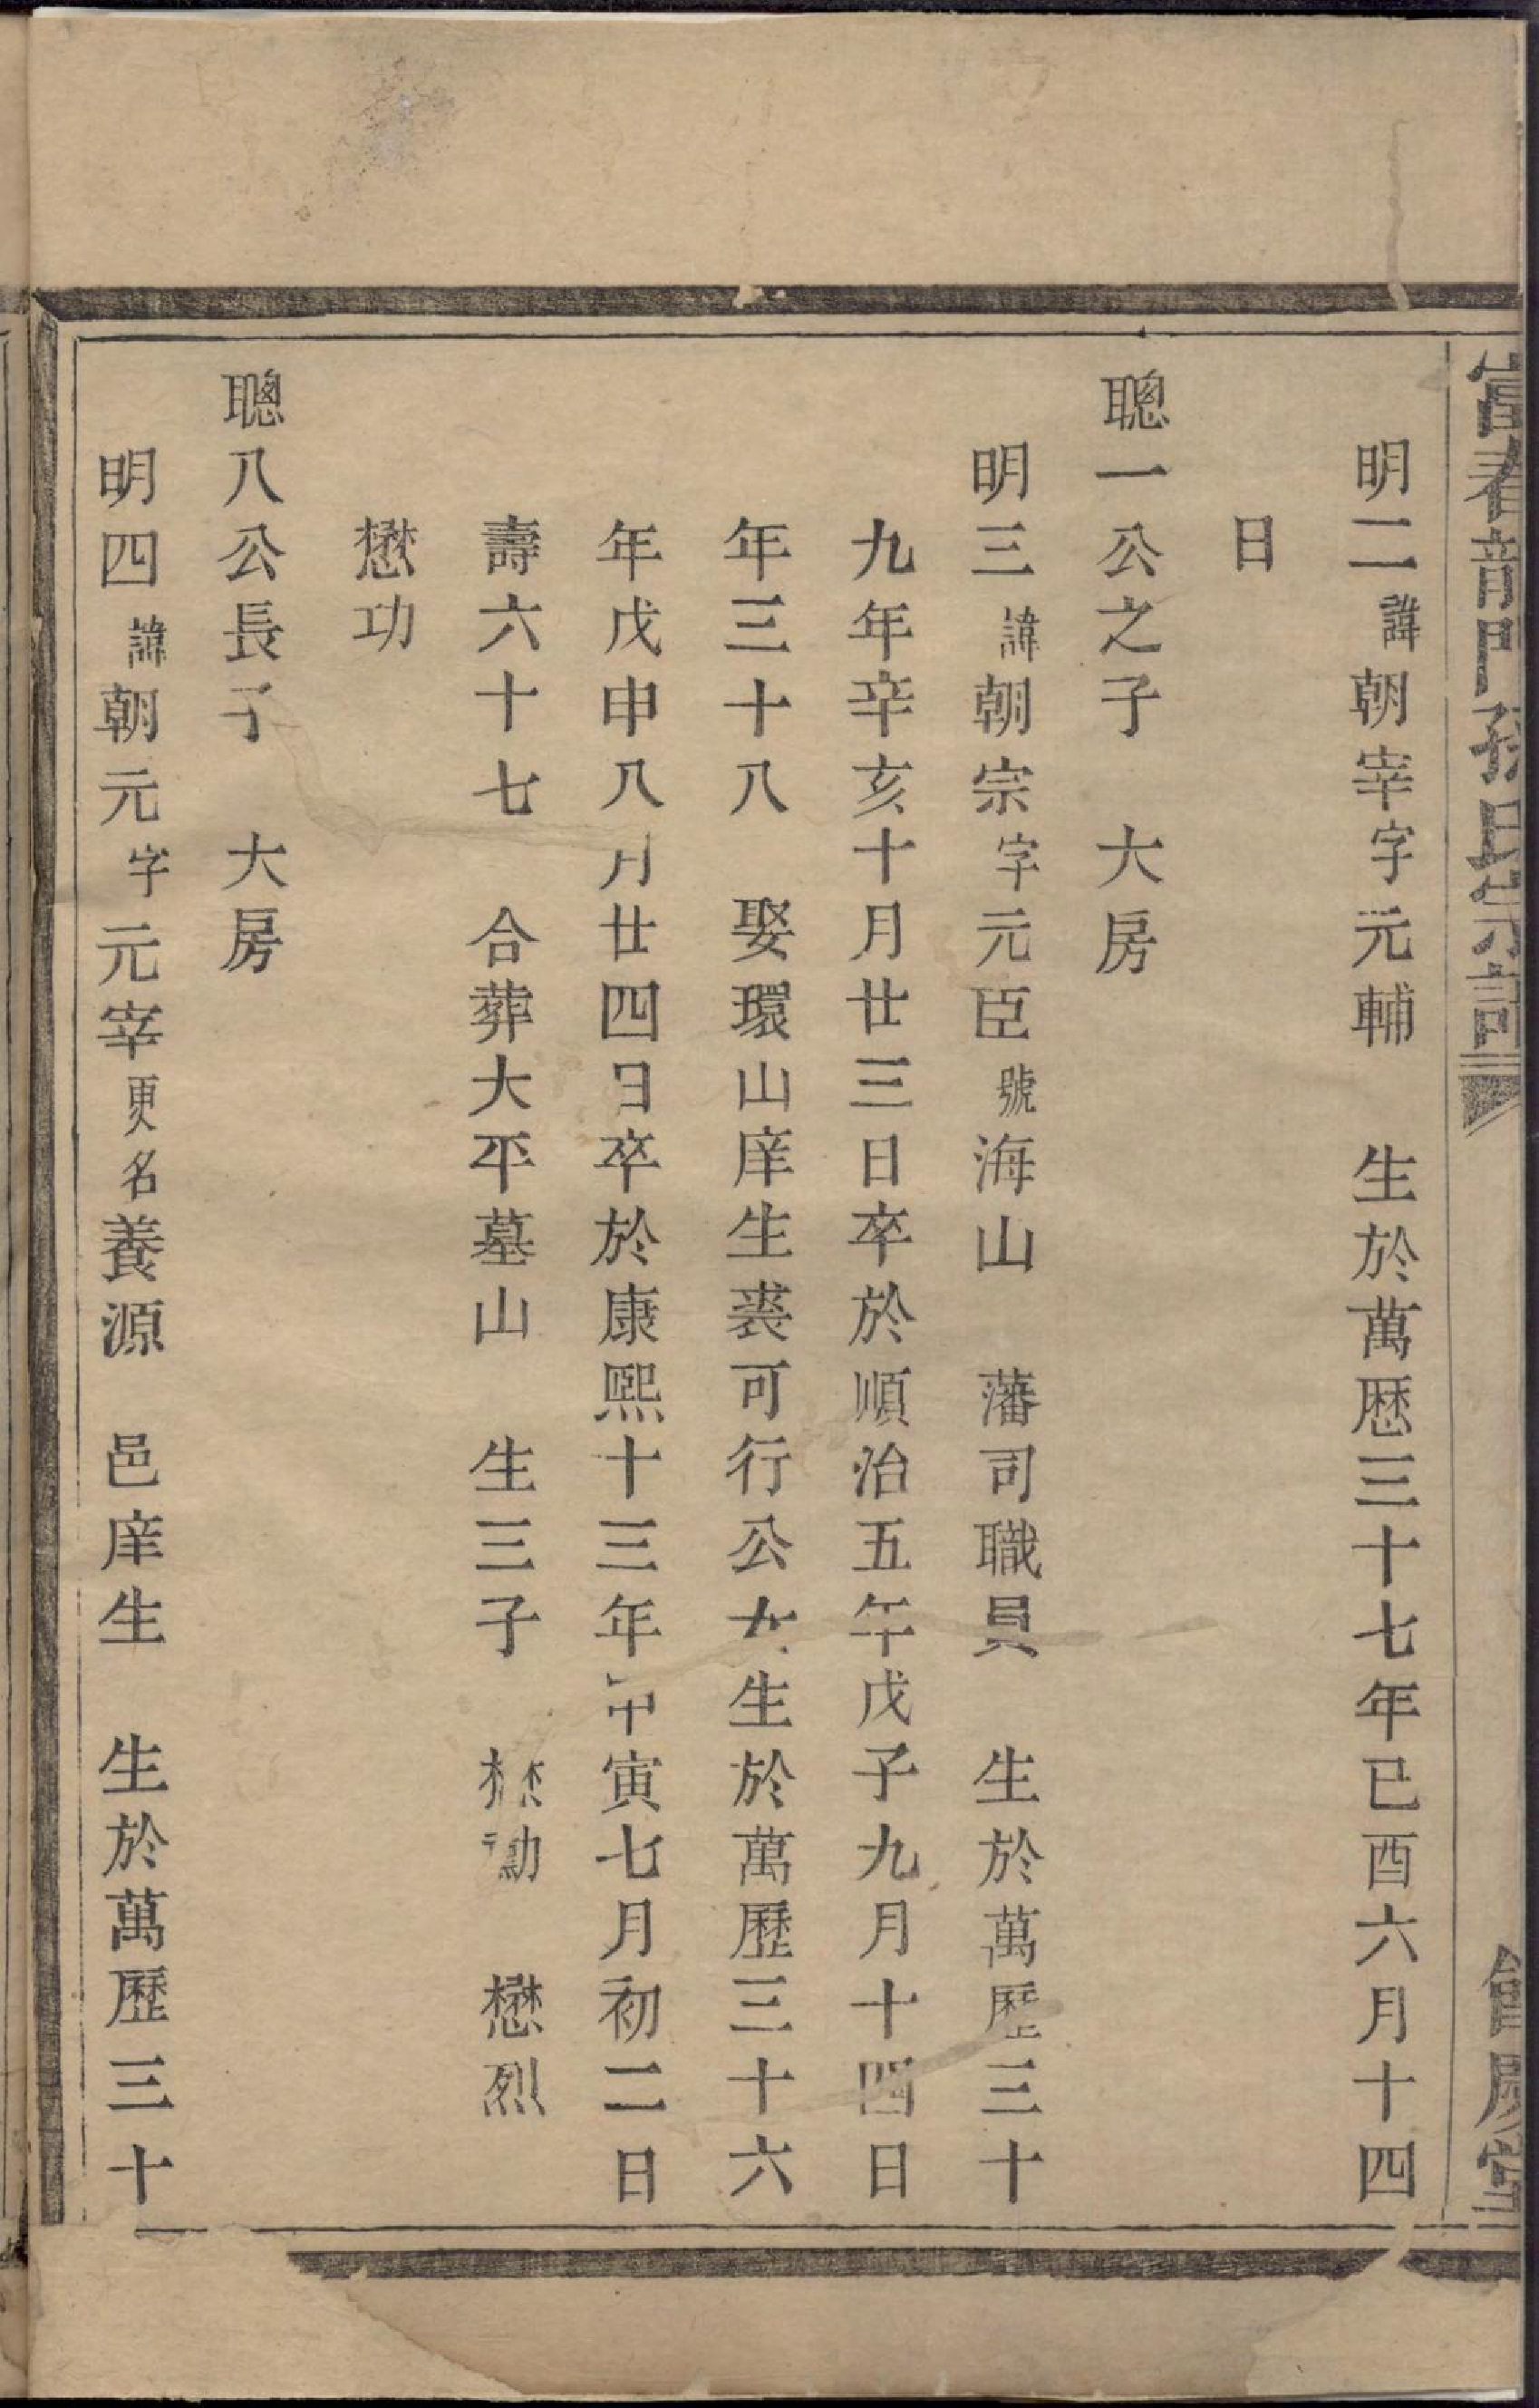 富春龍門孫氏宗譜
餘慶堂
明二諱朝宰字元輔 生於萬歷三十七年已酉六月十四
日
聰一公之子 大房
明三諱朝宗字元臣號海山 藩司職員 生於萬歷三十
九年辛亥十月廿三日卒於順治五年戊子九月十四日
年三十八 娶環山庠生裘可行公女生於萬歷三十六
年戊申八月廿四日卒於康熙十三年甲寅七月初二日
壽六十七 合葬大平墓山 生三子 懋勳 懋烈
懋功
聰八公長子 大房
明四諱朝元字元宰更名養源 邑庠生 生於萬歷三十